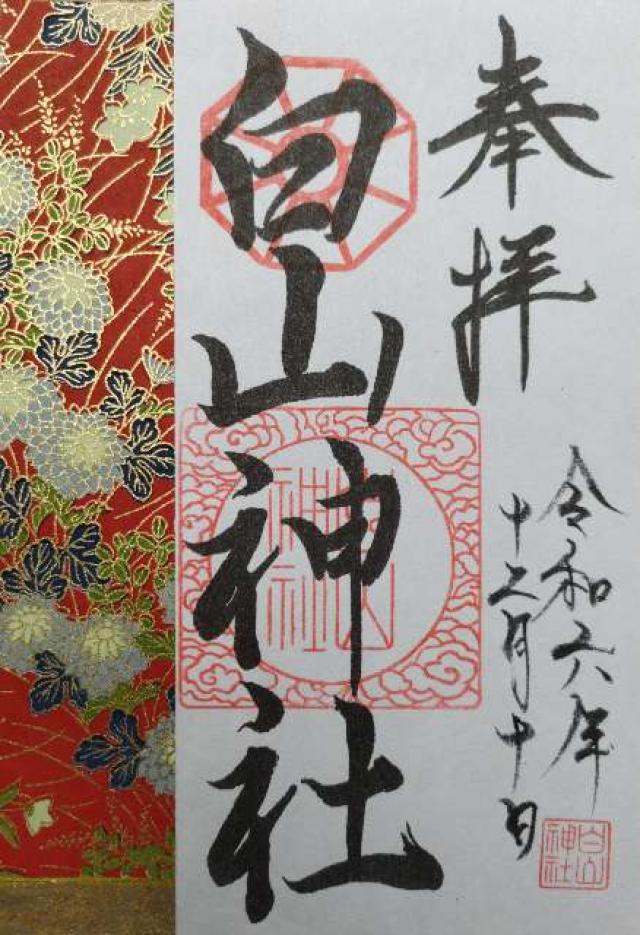 奉拝
令和六年
十二月十日
白山神社
白山神社
白山
神社